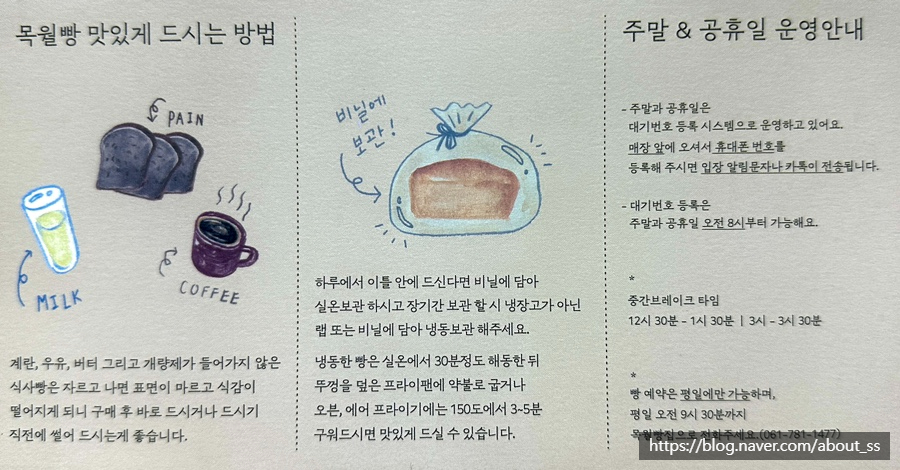 목월빵 맛있게 드시는 방법
PAIN
MILK
COFFEE
계란, 우유, 버터 그리고 개량제가 들어가지 않은
식사빵은 자르고 나면 표면이 마르고 식감이
떨어지게 되니 구매 후 바로 드시거나 드시기
직전에 썰어 드시는게 좋습니다.
비닐에
보관!
하루에서 이틀 안에 드신다면 비닐에 담아
실온보관 하시고 장기간 보관 할 시 냉장고가 아닌
랩 또는 비닐에 담아 냉동보관 해주세요.
냉동한 빵은 실온에서 30분정도 해동한 뒤
뚜껑을 덮은 프라이팬에 약불로 굽거나
오븐, 에어 프라이기에는 150도에서 3-5분
구워드시면 맛있게 드실 수 있습니다.
주말 & 공휴일 운영안내
- 주말과 공휴일은
대기번호 등록 시스템으로 운영하고 있어요.
매장 앞에 오셔서 휴대폰 번호를
등록해 주시면 입장 알림문자나 카톡이 전송됩니다.
- 대기번호 등록은
주말과 공휴일 오전 8시부터 가능해요.
*
중간브레이크 타임
12시 30분 - 1시 30분 | 3시 - 3시 30분
*
빵 예약은 평일에만 가능하며,
평일 오전 9시 30분까지
목월빵집으로 전화주세요.(061-781-1477)
https://blog.naver.com/about_ss